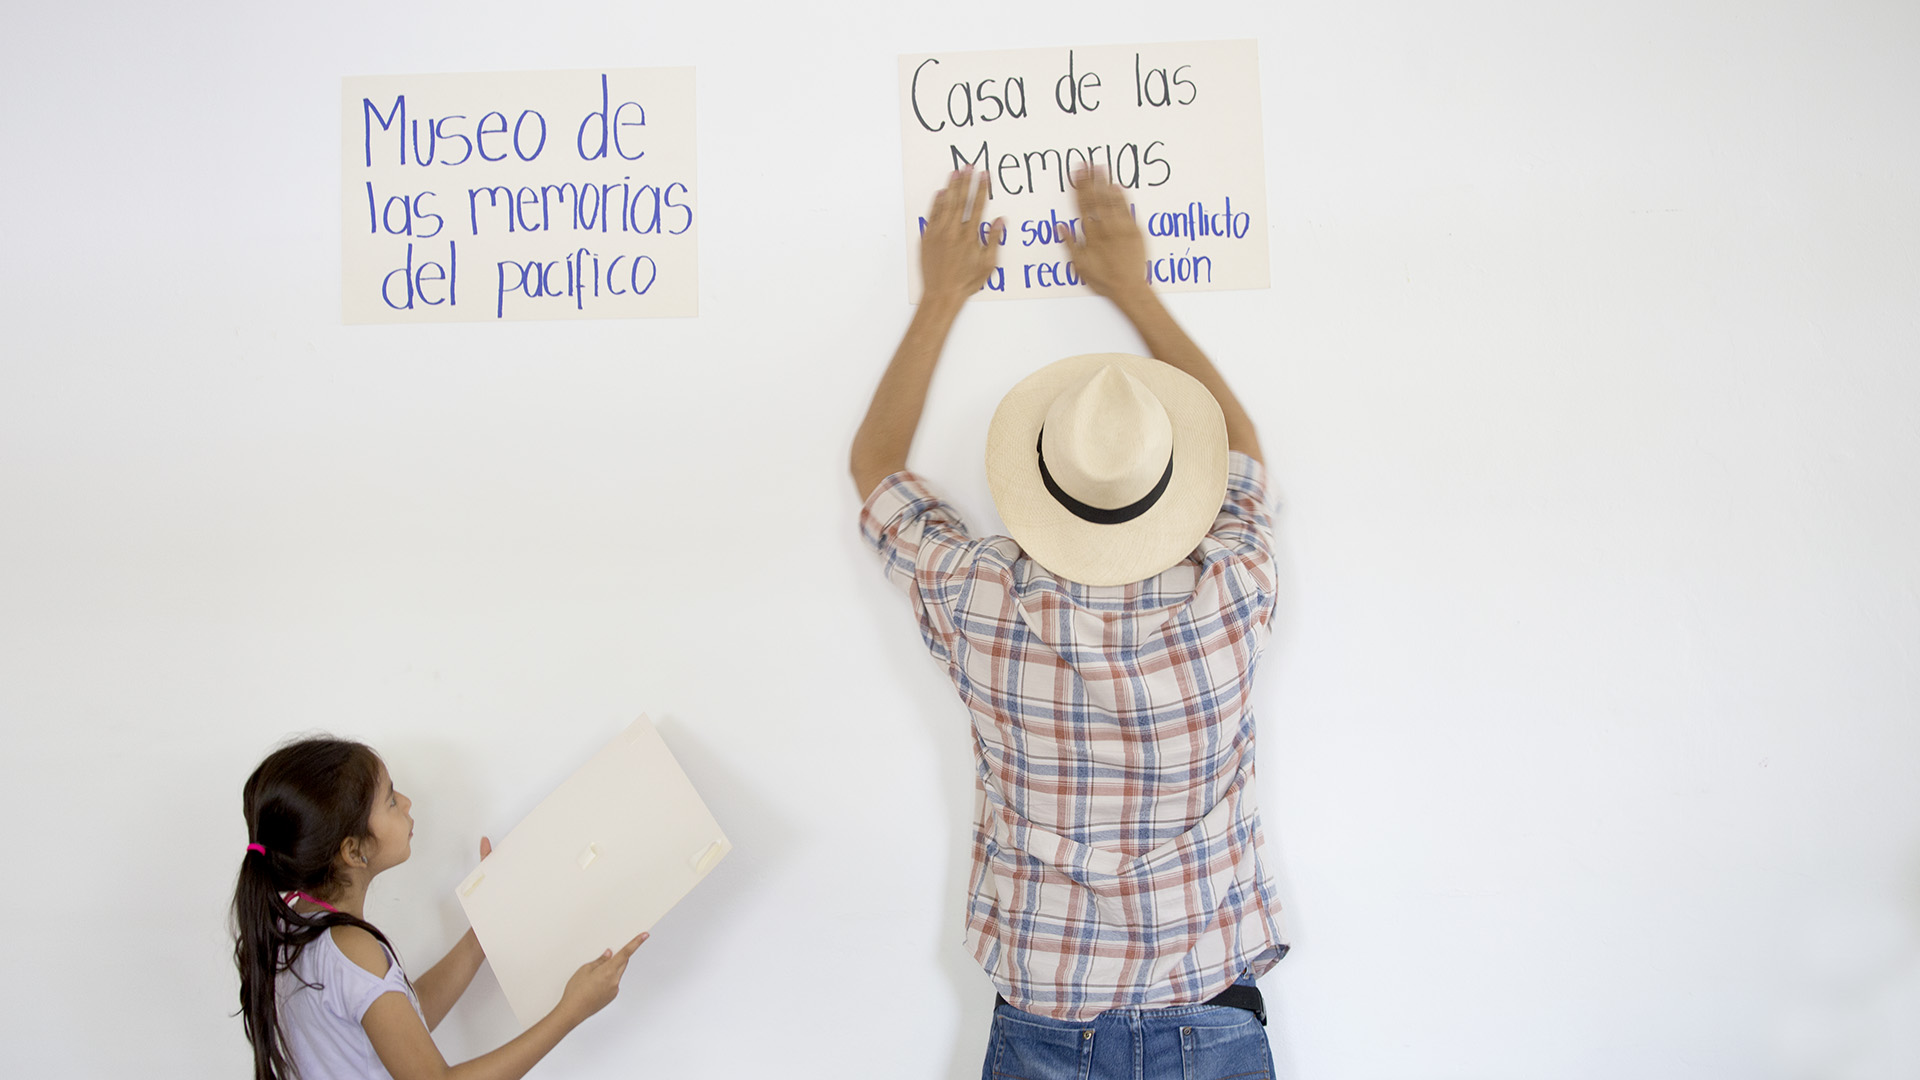 Museo de
las memorias
del pacífico
Casa de las
Memorias
sobre conflicto